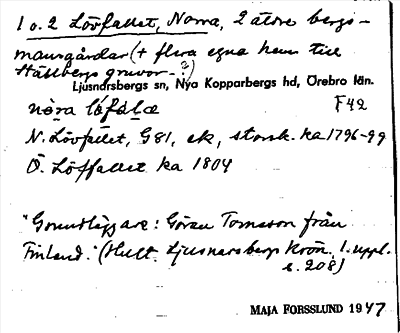 1 o. 2 Lövfallet, Norra, 2 större bergs-
mansgårdar (+ flera egna hem till
Ställbergs gruvor -?)
Ljusnarsbergs sn, Nya Kopparbergs hd, Örebro län.
nòra lófàlæ F42
N. Lövfallet, G81, ek, storsk. ka 1796-99
Ö. Löffallet ka 1804
"Grundläggare: Göran Tomsson från
Finland." (Hult. Ljusnarsbergs Krön. 1. uppl.
s. 208)
MAJA FORSSLUND 1947